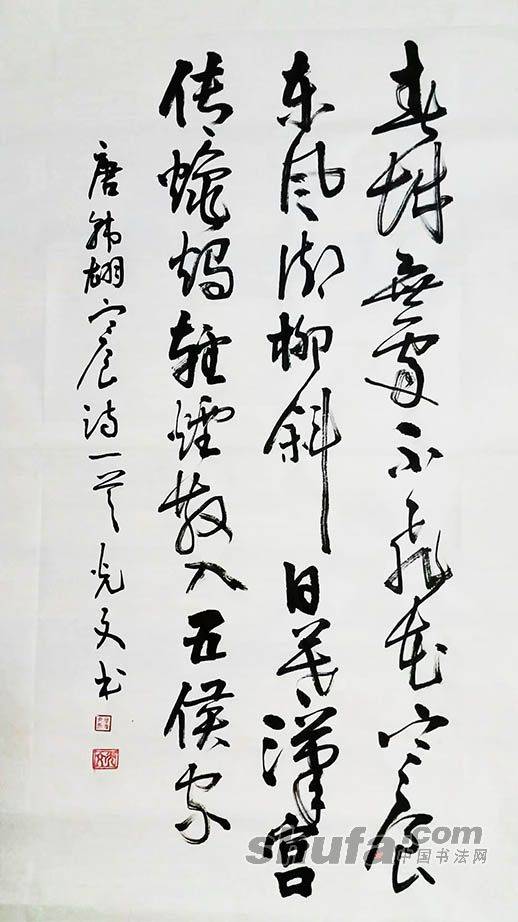 春城無處不飛花寒食
东风御柳斜日暮漢宮
传蠟燭轻煙散入五侯家
唐韩翃寒食诗一首光文书
shufa.com
中国书法网